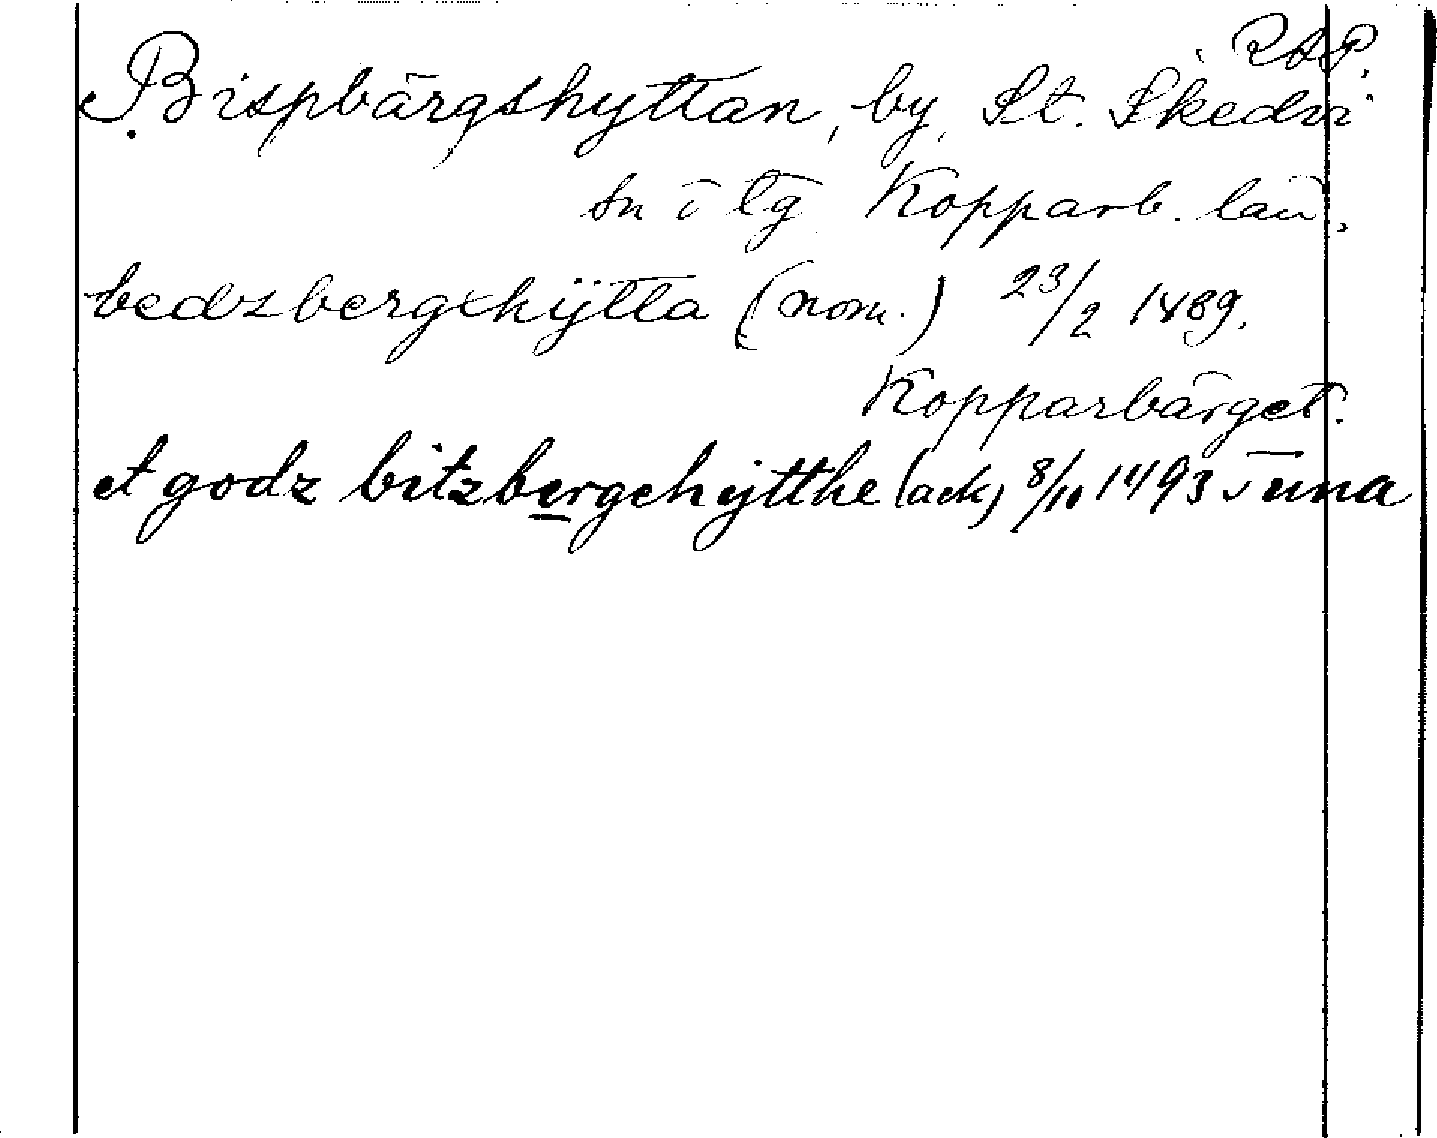 RAP.
Bispbärgshyttan, by, St. Skedvi
sn o tg Kopparb. län.
bedzbergxhÿtta (nom.) 23/2 1489.
Kopparbärget.
et godz bitzbergehytthe (ack) 8/10 1493 Tuna